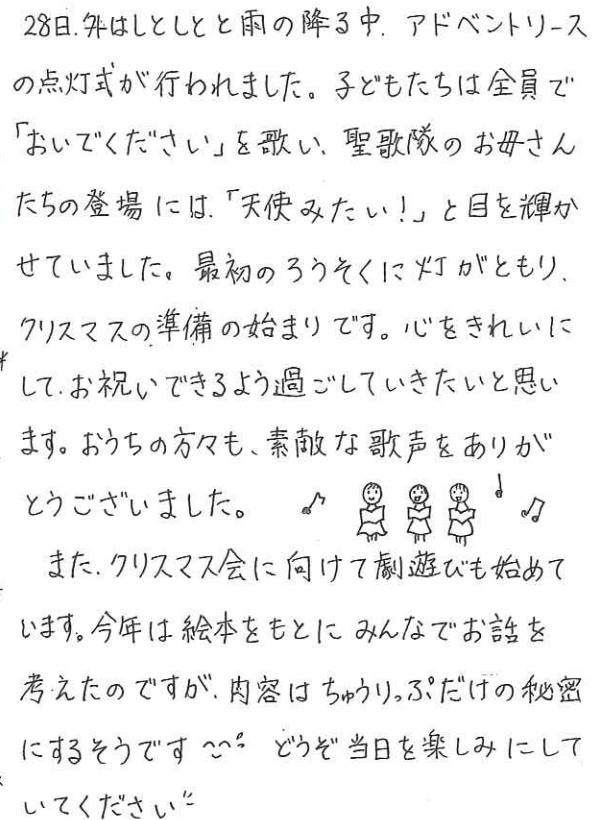 28日、外はしとしとと雨の降る中、アドベントリース
の点灯式が行われました。子どもたちは全員で
「おいでください」を歌い、聖歌隊のお母さん
たちの登場には、「天使みたい！」と目を輝か
せていました。最初のろうそくに灯がともり、
クリスマスの準備の始まりです。心をきれいに
して、お祝いできるよう過ごしていきたいと思い
ます。おうちの方々も、素敵な歌声をありが
とうございました。
また、クリスマス会に向けて劇遊びも始めて
います。今年は絵本をもとにみんなでお話を
考えたのですが、内容はちゅうりっぷだけの秘密
にするそうです どうぞ当日を楽しみにして
いてください